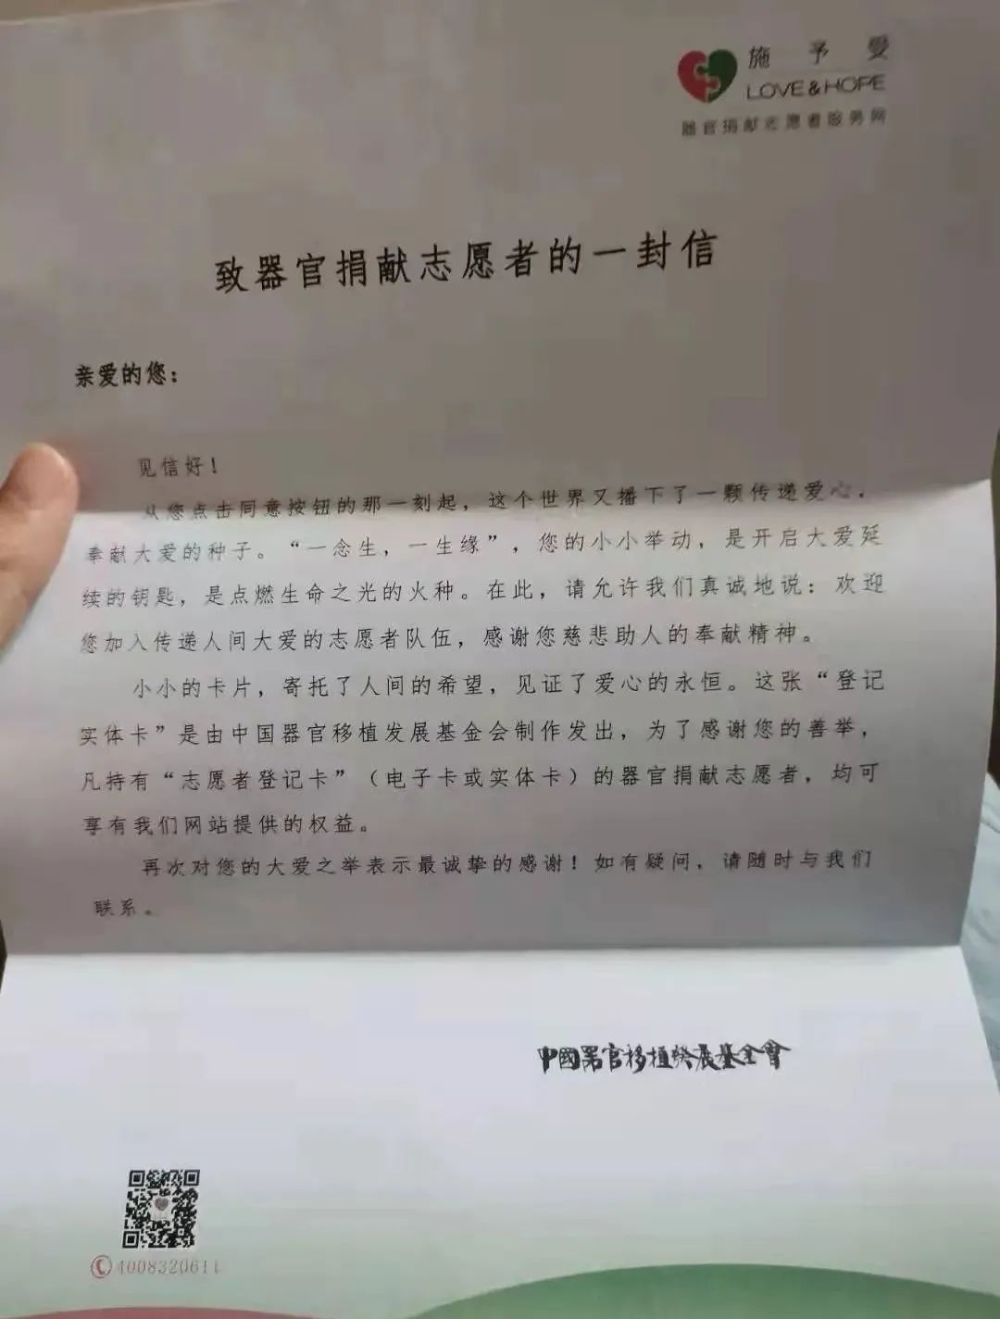 施予愛
LOVE&HOPE
器官捐献志愿者服务网
致器官捐献志愿者的一封信
亲爱的您：
见信好！
从您点击同意按钮的那一刻起，这个世界又播下了一颗传递爱心、
奉献大爱的种子。“一念生，一生缘”，您的小小举动，是开启大爱延
续的钥匙，是点燃生命之光的火种。在此，请允许我们真诚地说：欢迎
您加入传递人间大爱的志愿者队伍，感谢您慈悲助人的奉献精神。
小小的卡片，寄托了人间的希望，见证了爱心的永恒。这张“登记
实体卡”是由中国器官移植发展基金会制作发出，为了感谢您的善举，
凡持有“志愿者登记卡”（电子卡或实体卡）的器官捐献志愿者，均可
享有我们网站提供的权益。
再次对您的大爱之举表示最诚挚的感谢！如有疑问，请随时与我们
联系。
中國器官移植發展基金會
4008320611